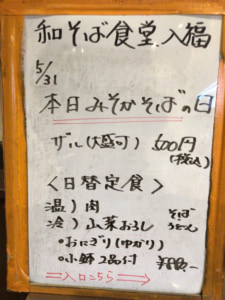 和そば食堂 入福
5/31
本日みそかそばの日
ザル(大盛可) 500円
(税込)
<日替定食>
温)肉
冷)山菜おろし
そば
うどん
・おにぎり(ゆかり)
・小鉢 2品付
⇒入口こちら⇒